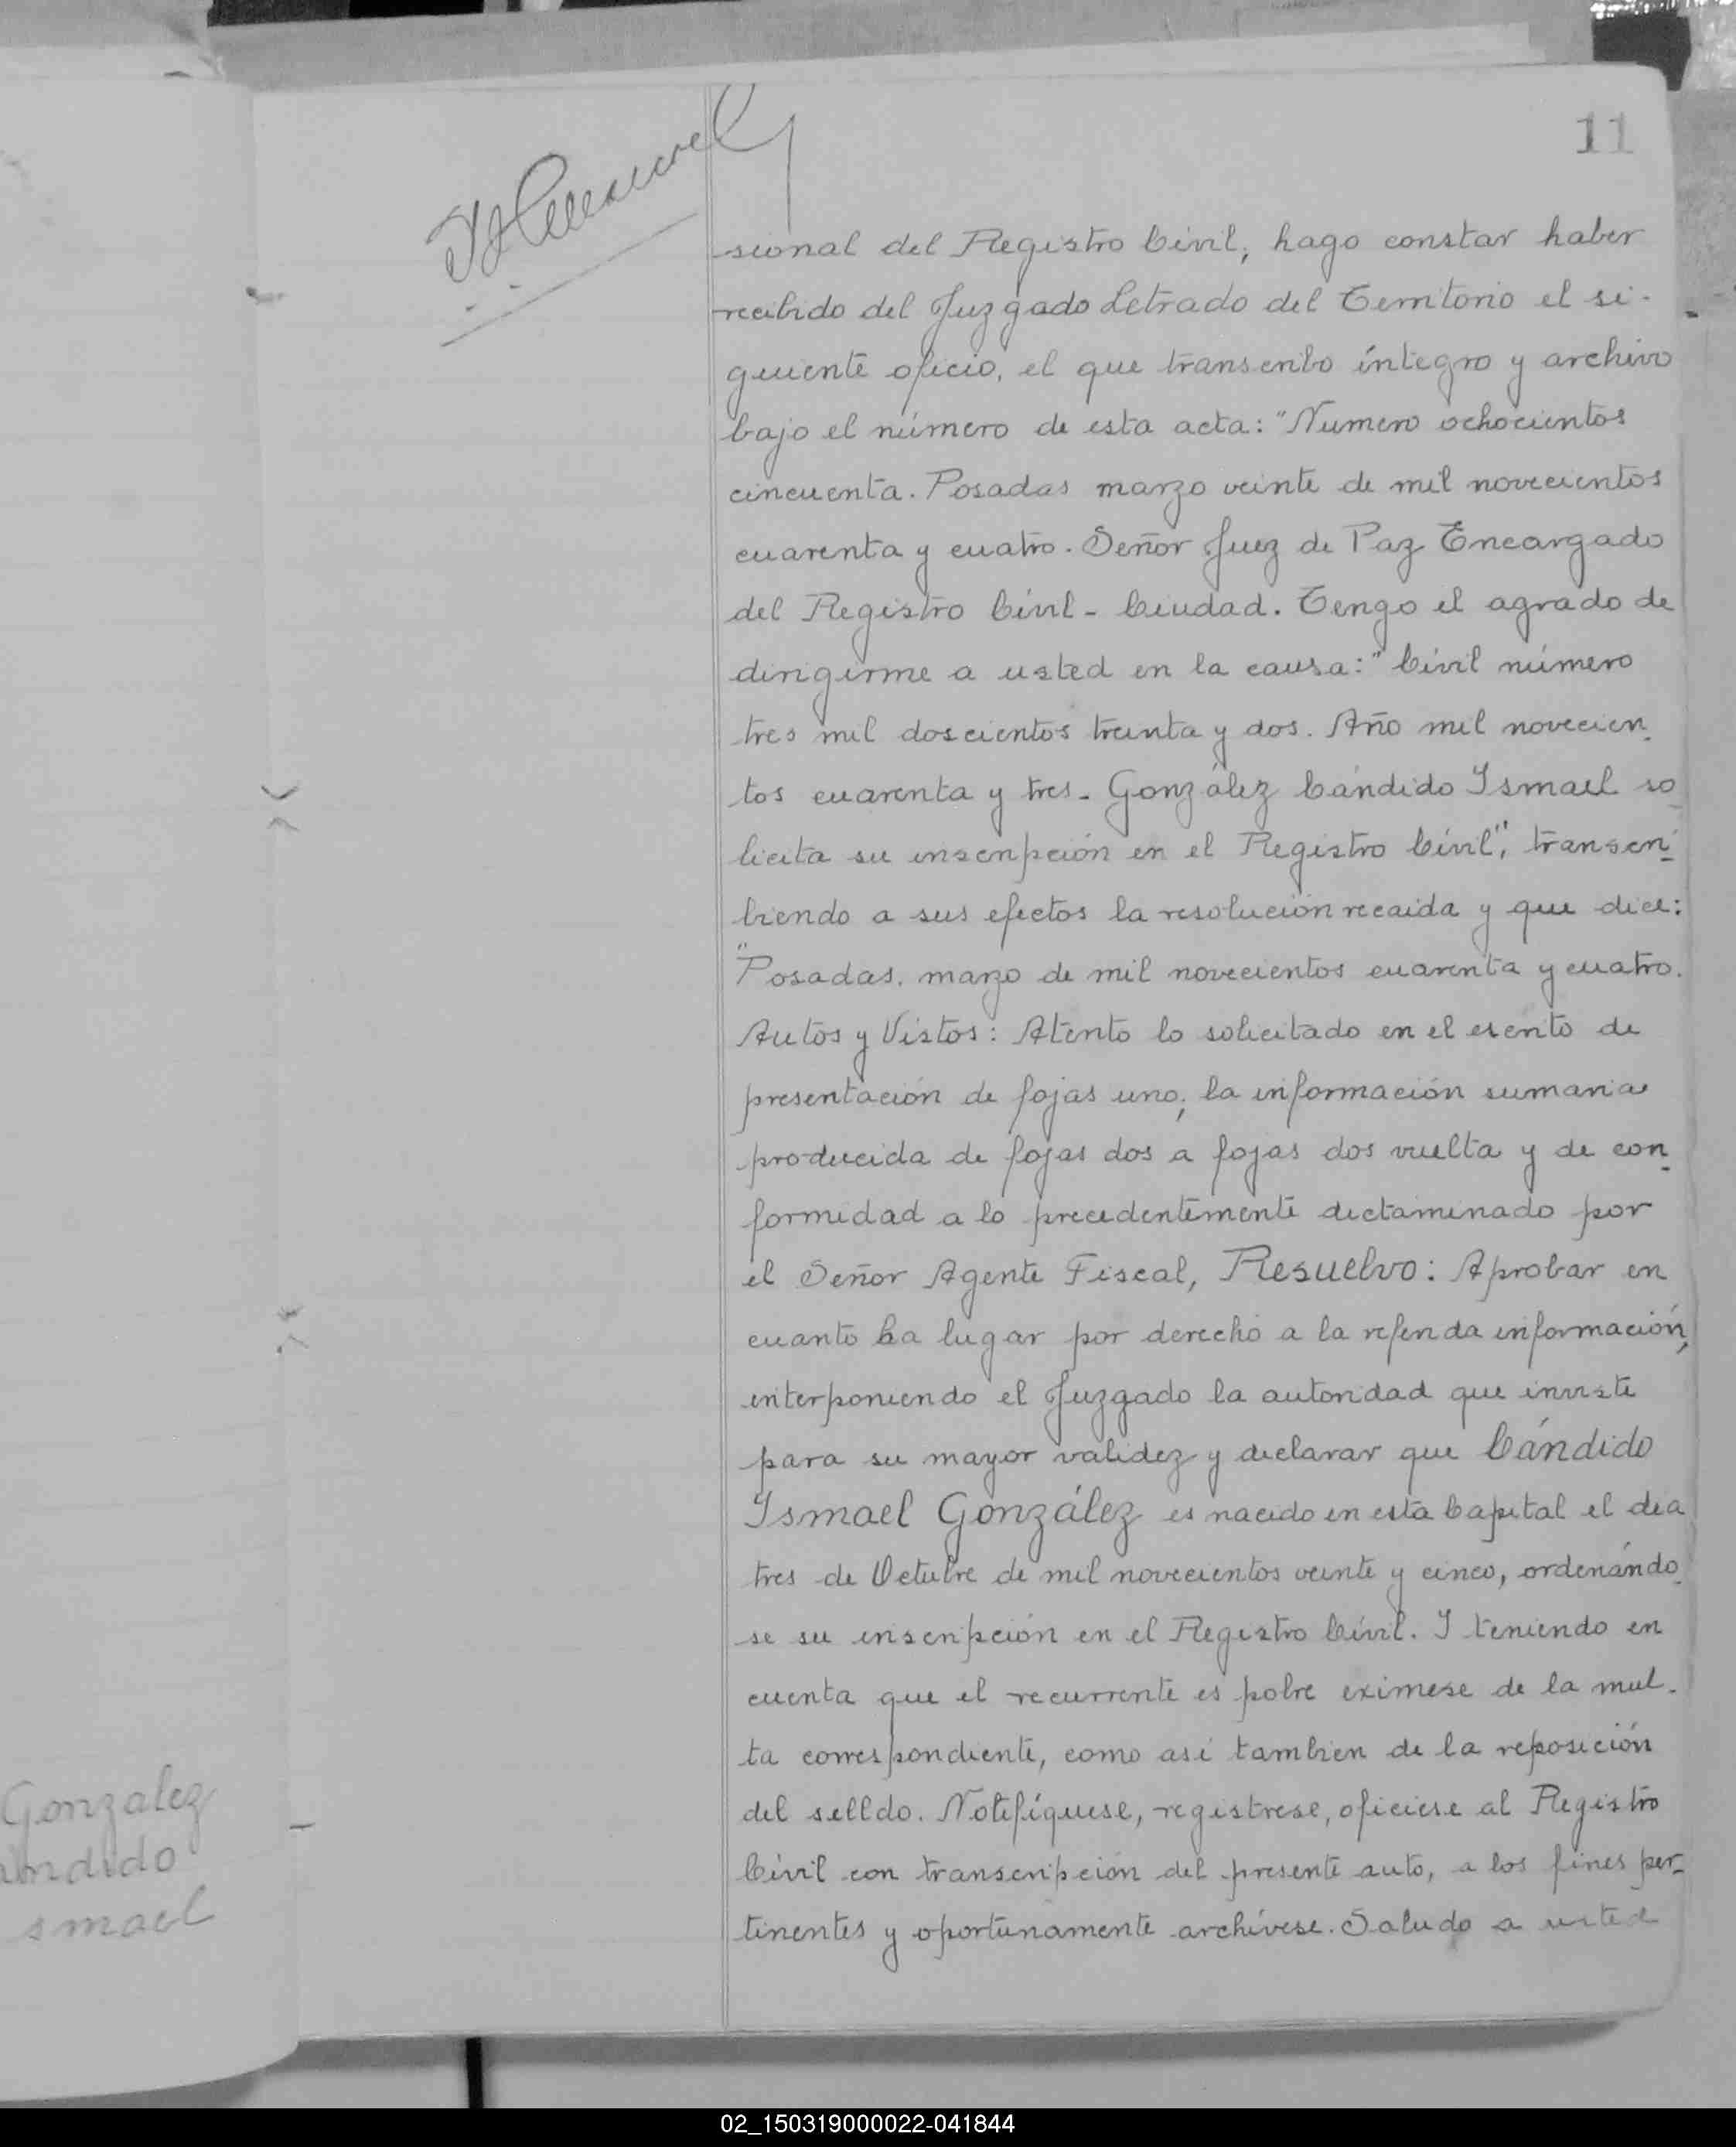 11
sional del Registro Civil, hago constar haber
recibido del Juzgado Letrado del Territorio el si-
guiente oficio, el que transcribo íntegro y archivo
bajo el número de esta acta: "Numero ochocientos
cincuenta. Posadas marzo veinte de mil novecientos
cuarenta y cuatro. Señor Juez de Paz Encargado
del Registro Civil - Ciudad. Tengo el agrado de
dirigirme a usted en la causa: "Civil número
tres mil doscientos treinta y dos. Año mil novecien-
tos cuarenta y tres - González Cándido Ismael so-
licita su inscripción en el Registro Civil", transcri-
biendo a sus efectos la resolución recaida y que dice:
"Posadas, marzo de mil novecientos cuarenta y cuatro.
Autos y Vistos: Atento lo solicitado en el escrito de
presentación de fojas uno; la información sumaria
producida de fojas dos a fojas dos vuelta y de con-
formidad a lo precedentemente dictaminado por
el Señor Agente Fiscal, Resuelvo: Aprobar en
cuanto ha lugar por derecho a la referida información,
interponiendo el Juzgado la autoridad que inviste
para su mayor validez y declarar que Cándido
Ismael González es nacido en esta Capital el dia
tres de Octubre de mil novecientos veinte y cinco, ordenándo-
se su inscripción en el Registro Civil. I teniendo en
cuenta que el recurrente es pobre exímese de la mul-
ta correspondiente, como así tambien de la reposición
del selldo. Notifíquese, registrese, oficiese al Registro
Civil con transcripción del presente auto, a los fines per-
tinentes y oportunamente archívese. Saludo a usted
Gonzalez
andido
smael
02_150319000022-041844